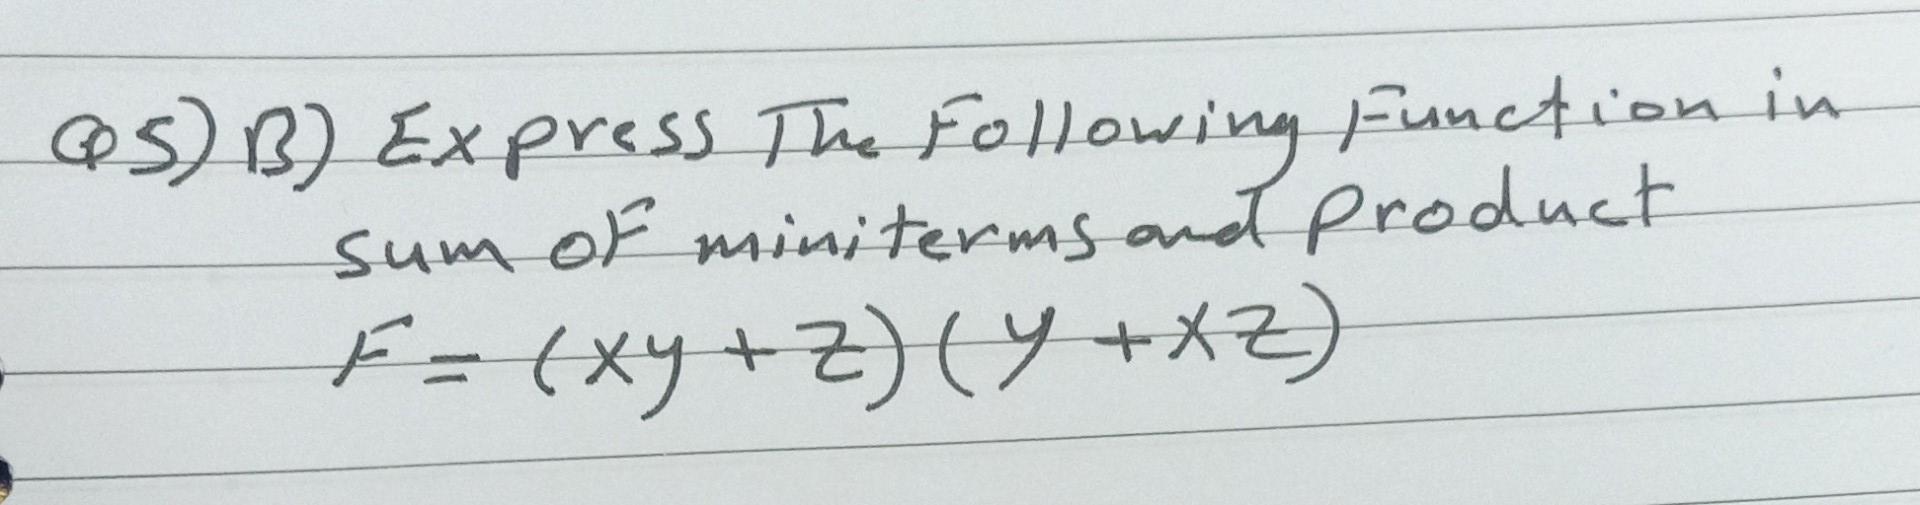 Q5) B) Express The Following Function in
sum of miniterms and product
F = (xy + z) (y + xz)